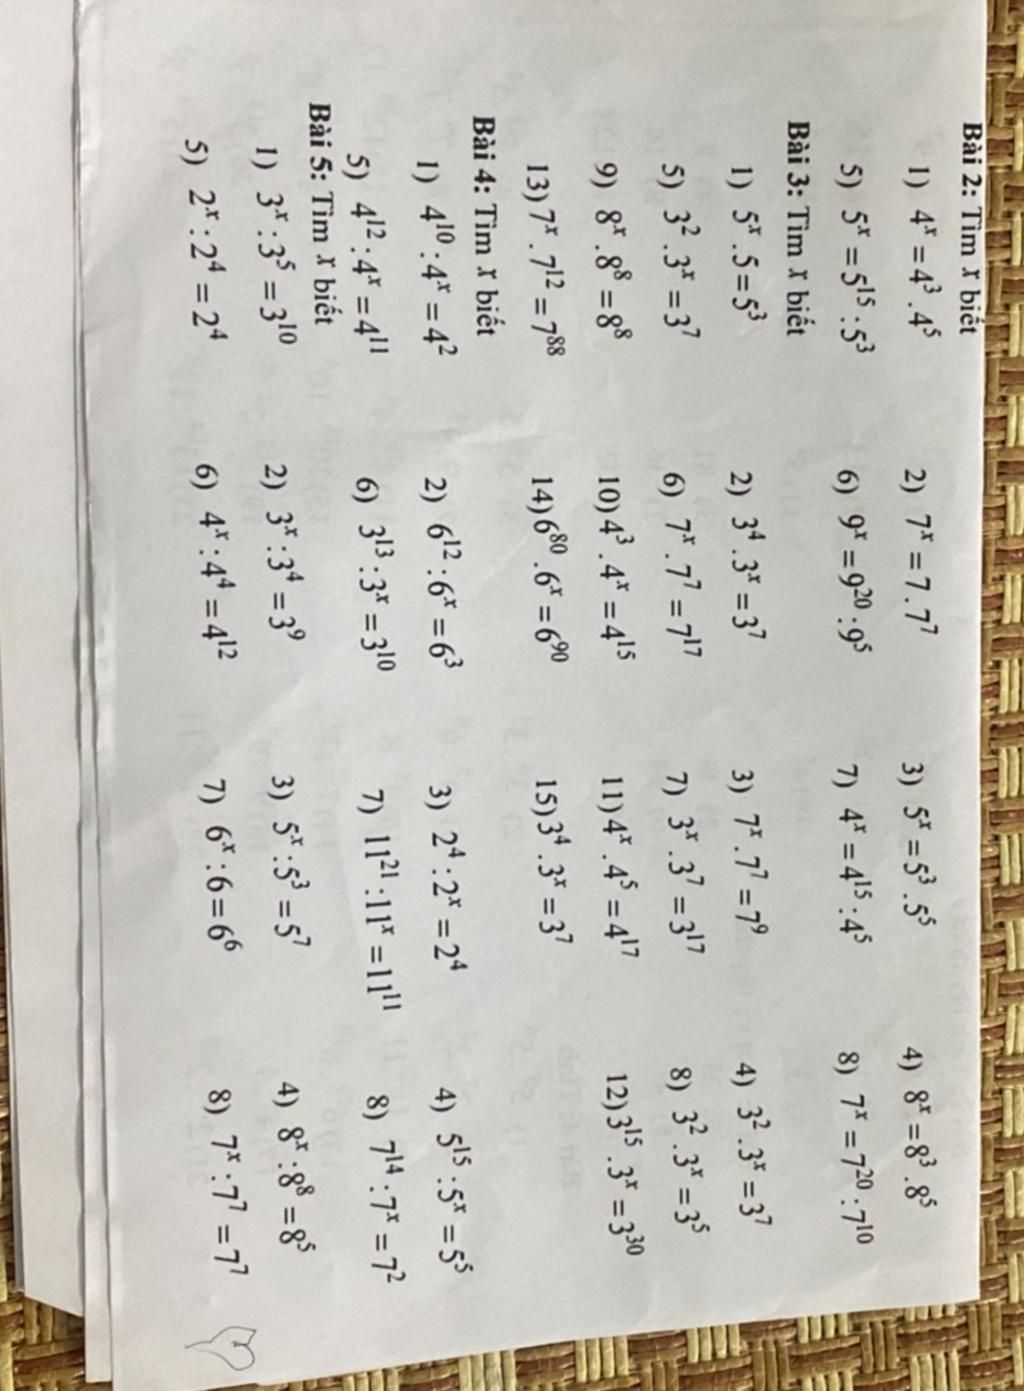 Bài 2: Tìm x biết
1) 4^x = 4^3 . 4^5 2) 7^x = 7 . 7^7 3) 5^x = 5^3 . 5^5 4) 8^x = 8^3 . 8^5
5) 5^x = 5^15 : 5^3 6) 9^x = 9^20 : 9^5 7) 4^x = 4^15 : 4^5 8) 7^x = 7^20 : 7^10
Bài 3: Tìm x biết
1) 5^x . 5 = 5^3 2) 3^4 . 3^x = 3^7 3) 7^x . 7^7 = 7^9 4) 3^2 . 3^x = 3^7
5) 3^2 . 3^x = 3^7 6) 7^x . 7^7 = 7^17 7) 3^x . 3^7 = 3^17 8) 3^2 . 3^x = 3^5
9) 8^x . 8^8 = 8^8 10) 4^3 . 4^x = 4^15 11) 4^x . 4^5 = 4^17 12) 3^15 . 3^x = 3^30
13) 7^x . 7^12 = 7^88 14) 6^80 . 6^x = 6^90 15) 3^4 . 3^x = 3^7
Bài 4: Tìm x biết
1) 4^10 : 4^x = 4^2 2) 6^12 : 6^x = 6^3 3) 2^4 : 2^x = 2^4 4) 5^15 : 5^x = 5^5
5) 4^12 : 4^x = 4^11 6) 3^13 : 3^x = 3^10 7) 11^21 : 11^x = 11^11 8) 7^14 : 7^x = 7^2
Bài 5: Tìm x biết
1) 3^x : 3^5 = 3^10 2) 3^x : 3^4 = 3^9 3) 5^x : 5^3 = 5^7 4) 8^x : 8^8 = 8^5
5) 2^x : 2^4 = 2^4 6) 4^x : 4^4 = 4^12 7) 6^x : 6 = 6^6 8) 7^x : 7^7 = 7^7